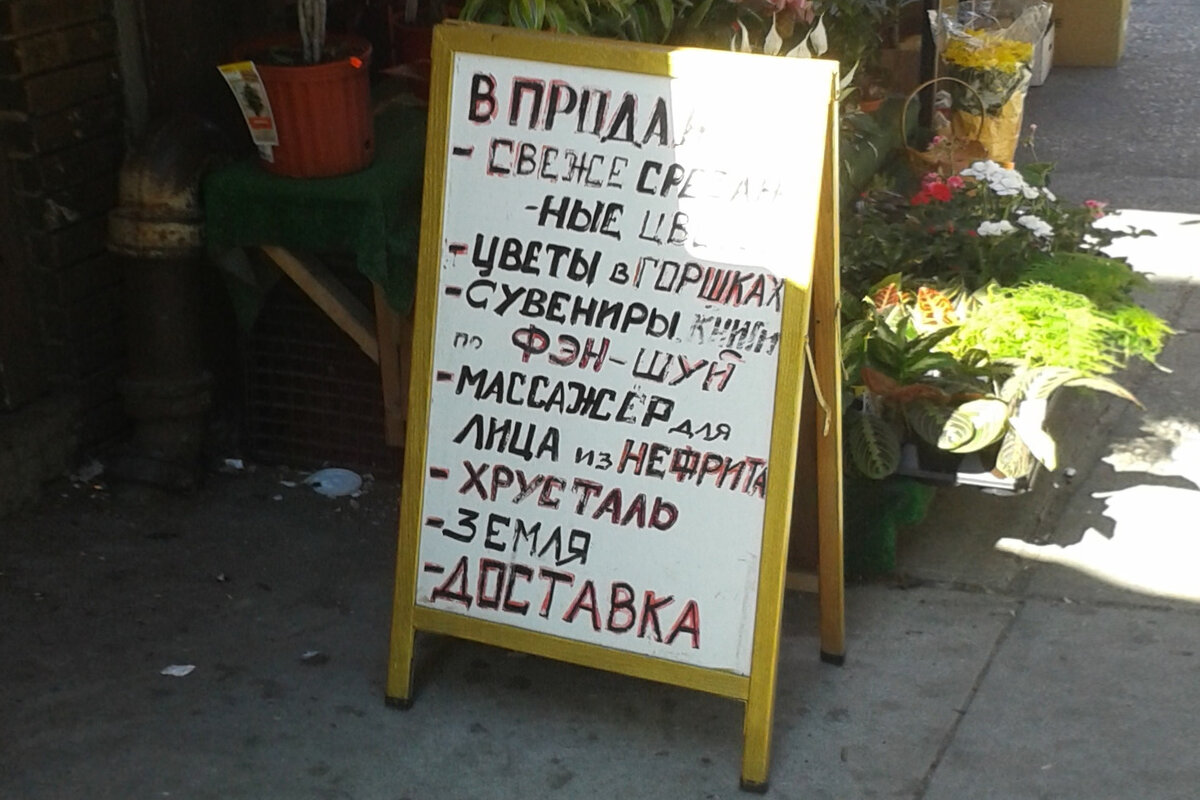 В ПРОДА
- СВЕЖЕ СРЕЗАН
-НЫЕ ЦВЕ
- ЦВЕТЫ в ГОРШКАХ
- СУВЕНИРЫ, КНИГИ
по ФЭН-ШУЙ
- МАССАЖЁР для
ЛИЦА из НЕФРИТА
- ХРУСТАЛЬ
- ЗЕМЛЯ
- ДОСТАВКА